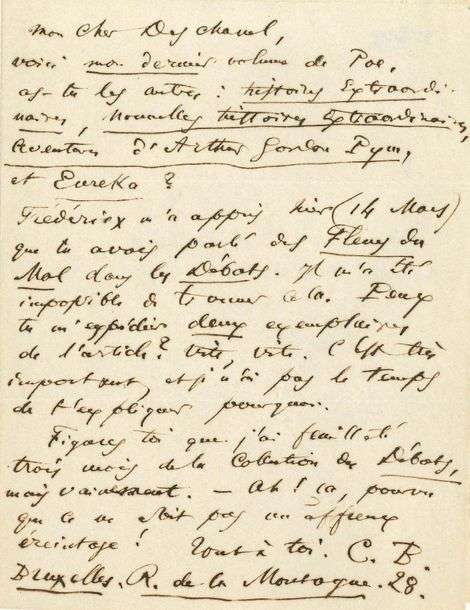 mon cher Deschanel,
voici mon dernier volume de Poe,
as-tu les autres : histoires Extraordi-
naires, Nouvelles histoires Extraordinaires,
Aventures d'Arthur Gordon Pym,
et Eureka ?
Frédérix m'a appris hier (14 Mars)
que tu avais parlé des Fleurs du
Mal dans les Débats. Il m'a été
impossible de trouver cela. Peux
tu m'expédier deux exemplaires
de l'article ? vite, vite. C'est très
important, et je n'ai pas le temps
de t'expliquer pourquoi.
Figures toi que j'ai feuilleté
trois mois de la Collection des Débats,
mais vainement. — Ah ! ça, pourvu
que ce ne soit pas un affreux
éreintage ! Tout à toi. C. B.
Bruxelles. R. de la Montagne. 28.